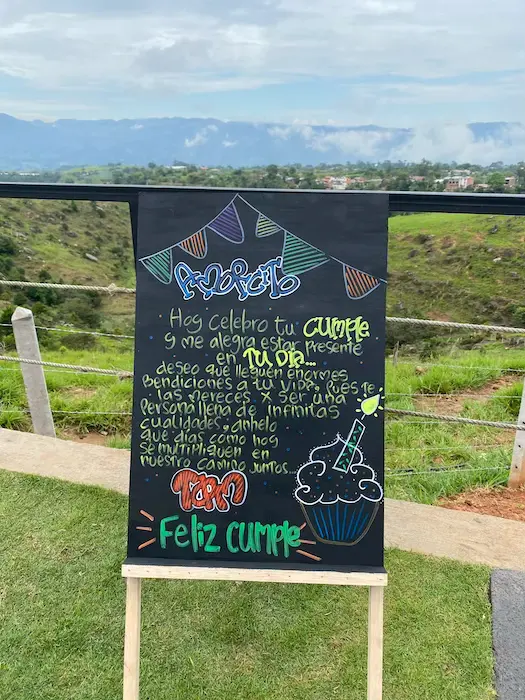 AMORCITO
Hoy celebro tu CUMPLE
y me alegra estar presente
en TU DIA...
deseo que lleguen enormes
Bendiciones a tu VIDA, pues te
las mereces x ser una
Persona llena de infinitas
cualidades, anhelo
que días como hoy
se multipliquen en
nuestro camino juntos...
TQM
Feliz CUMPLE